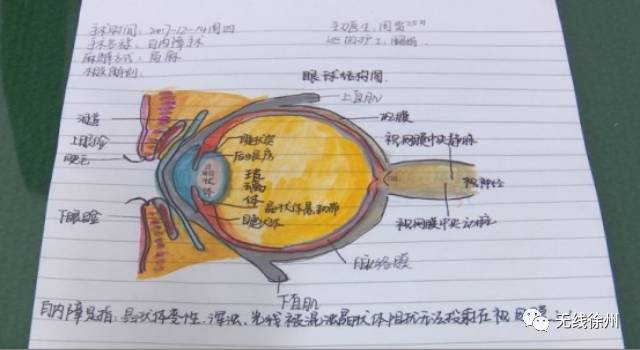 手术时间：2017-12-14周四
手术名称：白内障手术
麻醉方式：局麻
眼球结构图
上直肌
巩膜
泪器
上眼睑
睫毛
睫状突
后眼房
视网膜中央静脉
晶状体
玻璃体
视神经
晶状体悬韧带
睫状体
下眼睑
视网膜中央动脉
脉络膜
下直肌
白内障是指：晶状体变性、浑浊，光线被混浊晶状体阻扰无法投射在视网膜上
无线徐州